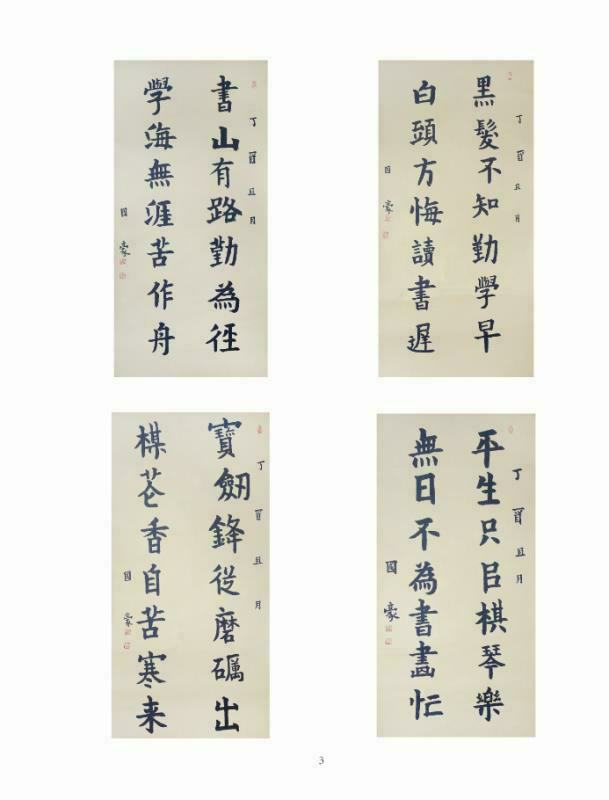 丁酉丑月
書山有路勤為徑
學海無涯苦作舟
國豪
丁酉丑月
黑髮不知勤學早
白頭方悔讀書遲
國豪
丁酉丑月
寶劔鋒從磨礪出
楳花香自苦寒来
國豪
丁酉丑月
平生只㠯棋琴樂
無日不為書畫忙
國豪
3